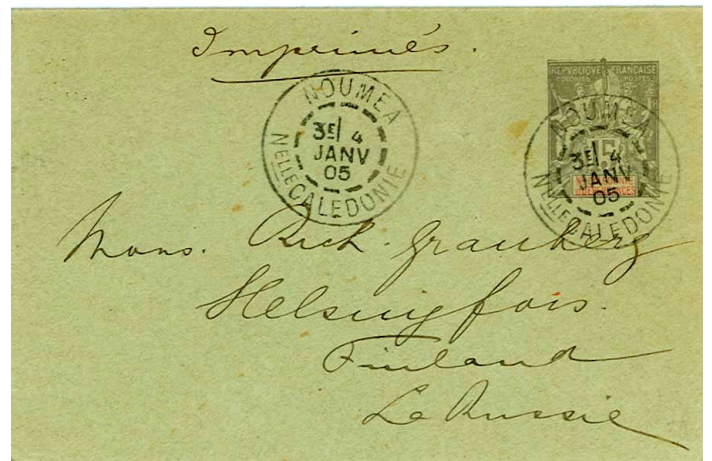 Imprimés.
NOUMEA
3E/ 4
JANV
05
Nelle CALEDONIE
REPUBLIQUE FRANÇAISE
COLONIES POSTES
NOUMEA
3E/ 4
JANV
05
Nelle CALEDONIE
Mons. Rich. Granberg
Helsingfors.
Finland
La Russie